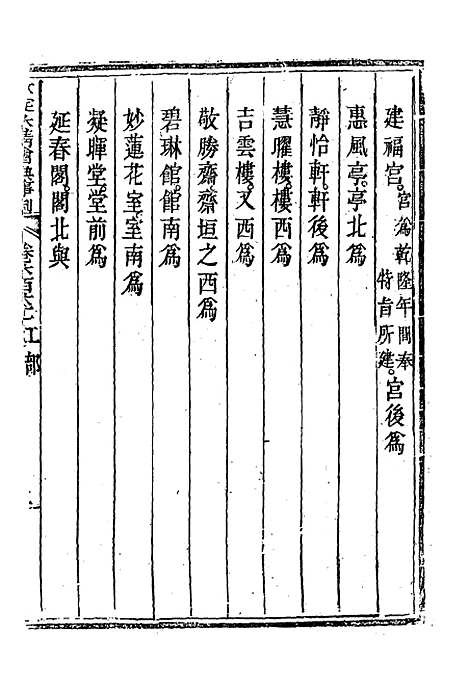 建福宮。宮爲乾隆年間奉特旨所建。宮後爲
惠風亭。亭北爲
靜怡軒。軒後爲
慧曜樓。樓西爲
吉雲樓。又西爲
敬勝齋。齋垣之西爲
碧琳館。館南爲
妙蓮花室。室南爲
凝暉堂。堂前爲
延春閣。閣北與
欽定大清會典事例 工部